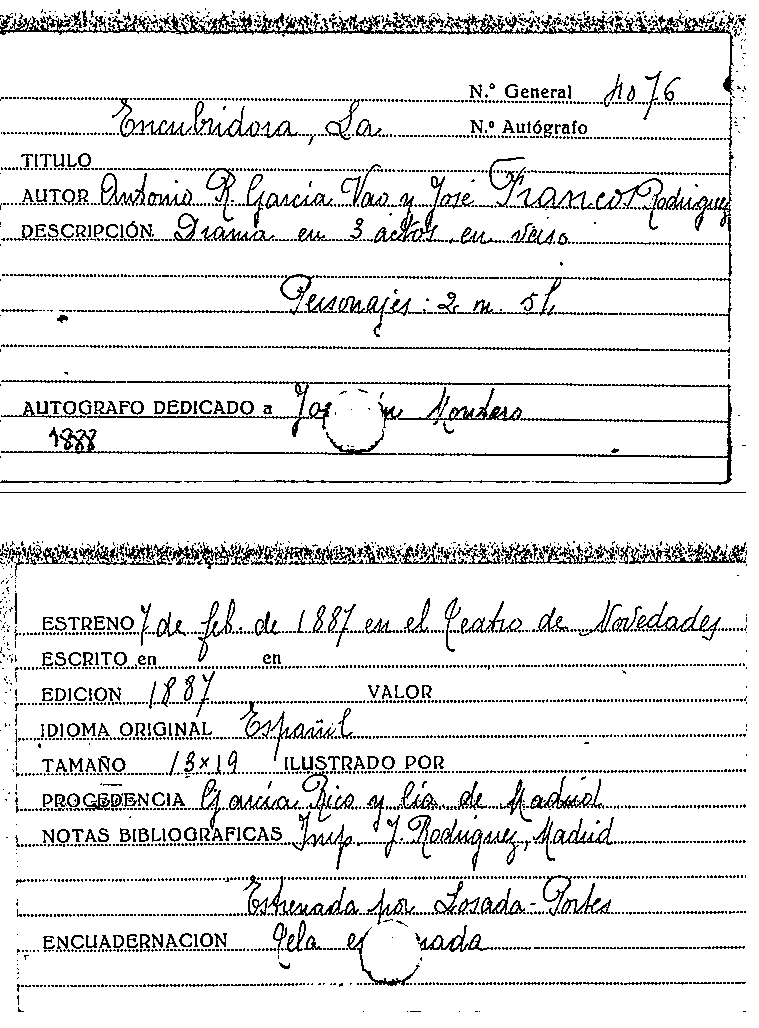 N.º General 4076
Encubridora, La
N.º Autógrafo
TITULO
AUTOR Antonio R. García Vao y José Francos Rodriguez
DESCRIPCIÓN Drama en 3 actos, en verso
Personajes: 2 m. 5 h.
AUTOGRAFO DEDICADO a Montero
1888
ESTRENO 7 de feb. de 1887 en el Teatro de Novedades
ESCRITO en en
EDICION 1887 VALOR
IDIOMA ORIGINAL Español
TAMAÑO 13x19 ILUSTRADO POR
PROCEDENCIA García Rico y Cía. de Madrid
NOTAS BIBLIOGRAFICAS Imp. J. Rodriguez, Madrid
Estrenada por Losada-Portes
ENCUADERNACION Tela